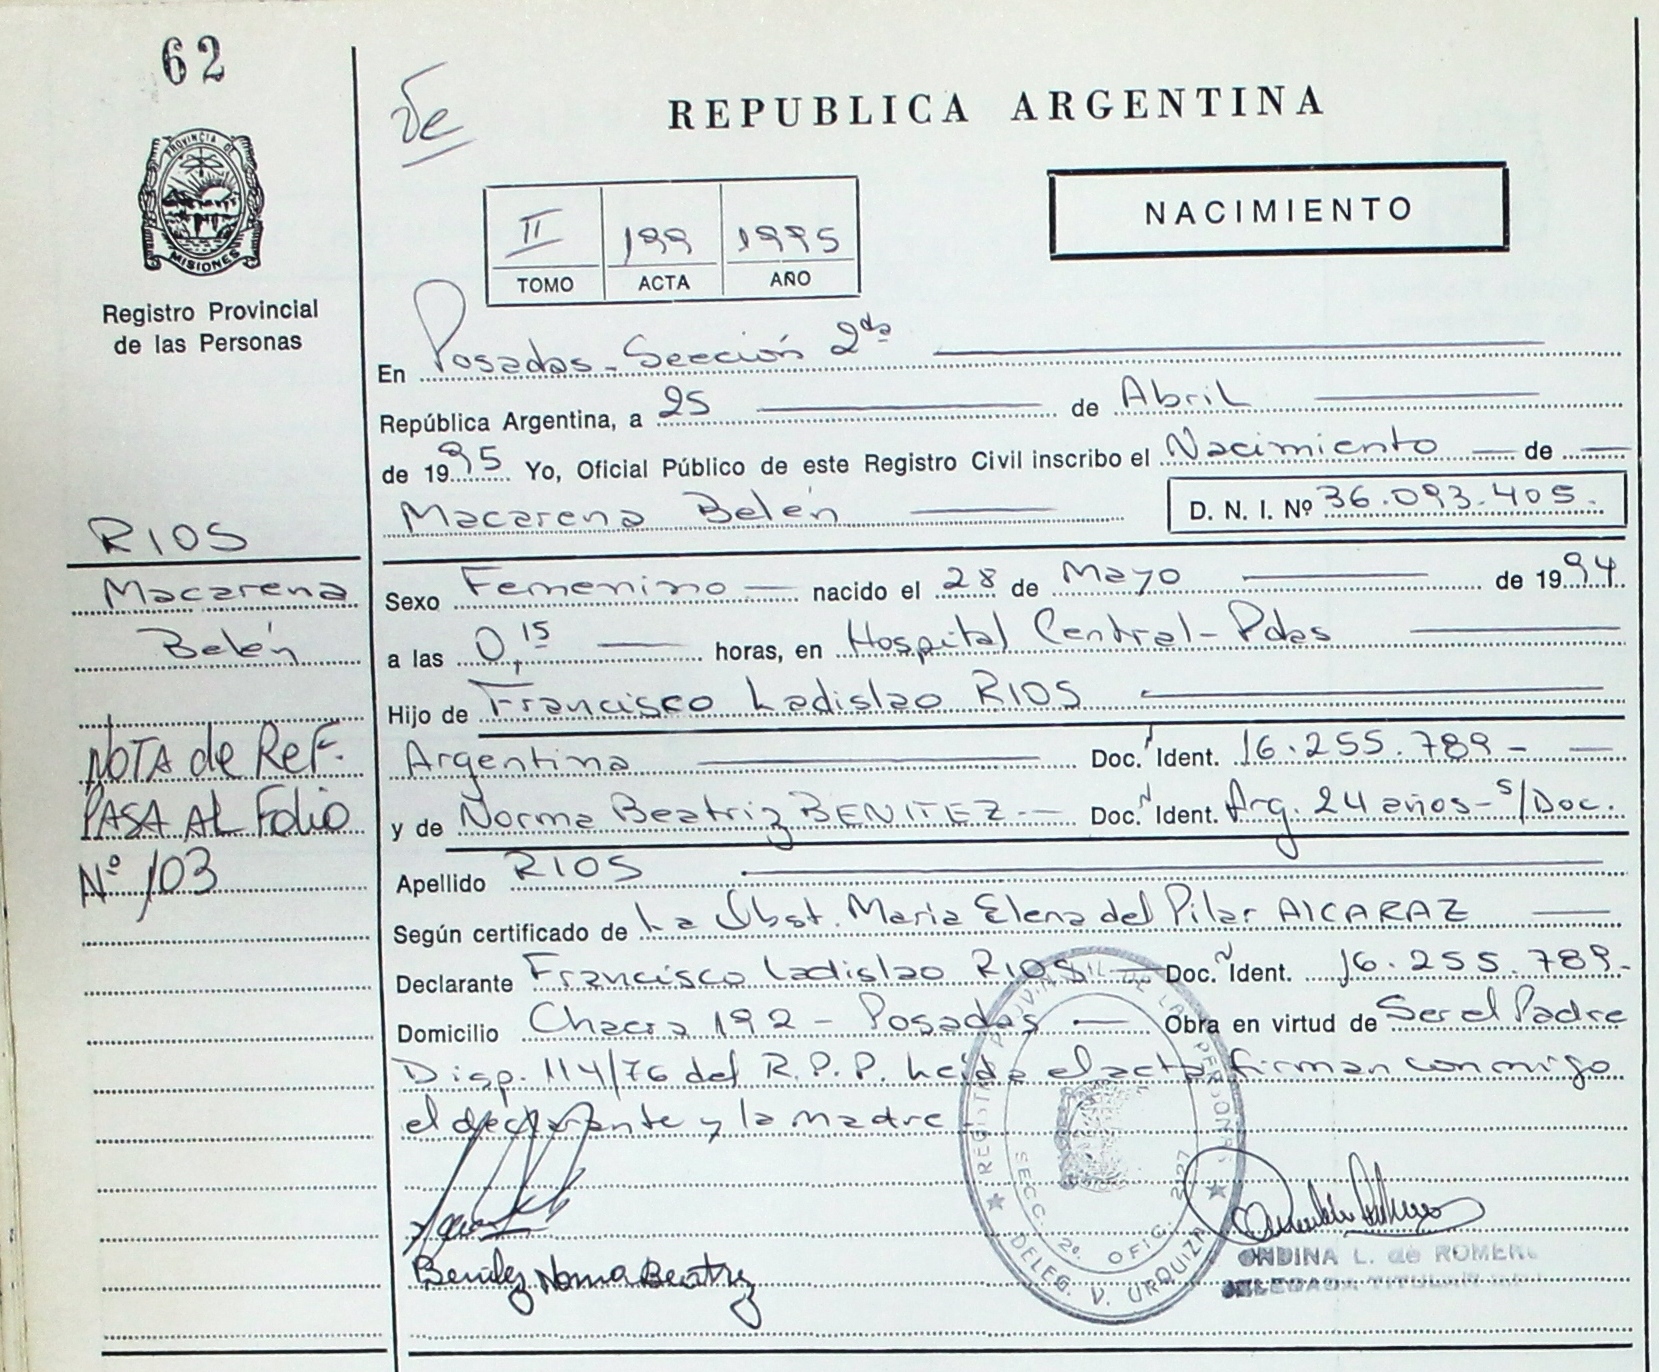 62
Ve
REPUBLICA ARGENTINA
PROVINCIA DE
MISIONES
NACIMIENTO
II 199 1995
TOMO ACTA AÑO
Registro Provincial
de las Personas
En Posadas - Sección 2da
República Argentina, a 25 de Abril
de 1995 Yo, Oficial Público de este Registro Civil inscribo el Nacimiento de
Macarena Belén D. N. I. Nº 36.093.405.
RIOS
Macarena
Belén
Sexo Femenino nacido el 28 de Mayo de 1994
a las 0,15 horas, en Hospital Central - Pdas
Hijo de Francisco Ladislao RIOS
NOTA de Ref.
PASA AL Folio
Nº 103
Argentina Doc. Ident. 16.255.789 -
y de Norma Beatriz BENITEZ.- Doc. Ident. Arg. 24 años - s/Doc.
Apellido RIOS
Según certificado de La Obst. Maria Elena del Pilar AlCARAZ
Declarante Francisco Ladislao RIOS Doc. Ident. 16.255.789.-
Domicilio Chacra 192 - Posadas Obra en virtud de Ser el Padre
Disp. 114/76 del R.P.P. Leída el acta, firman conmigo
el declarante y la madre
REGISTRO PROVINCIAL DE LAS PERSONAS
SECC. 2º. OFIC. 2127
DELEG. V. URQUIZA
Benitez Norma Beatriz
ONDINA L. de ROMERO
DELEGADA TITULAR